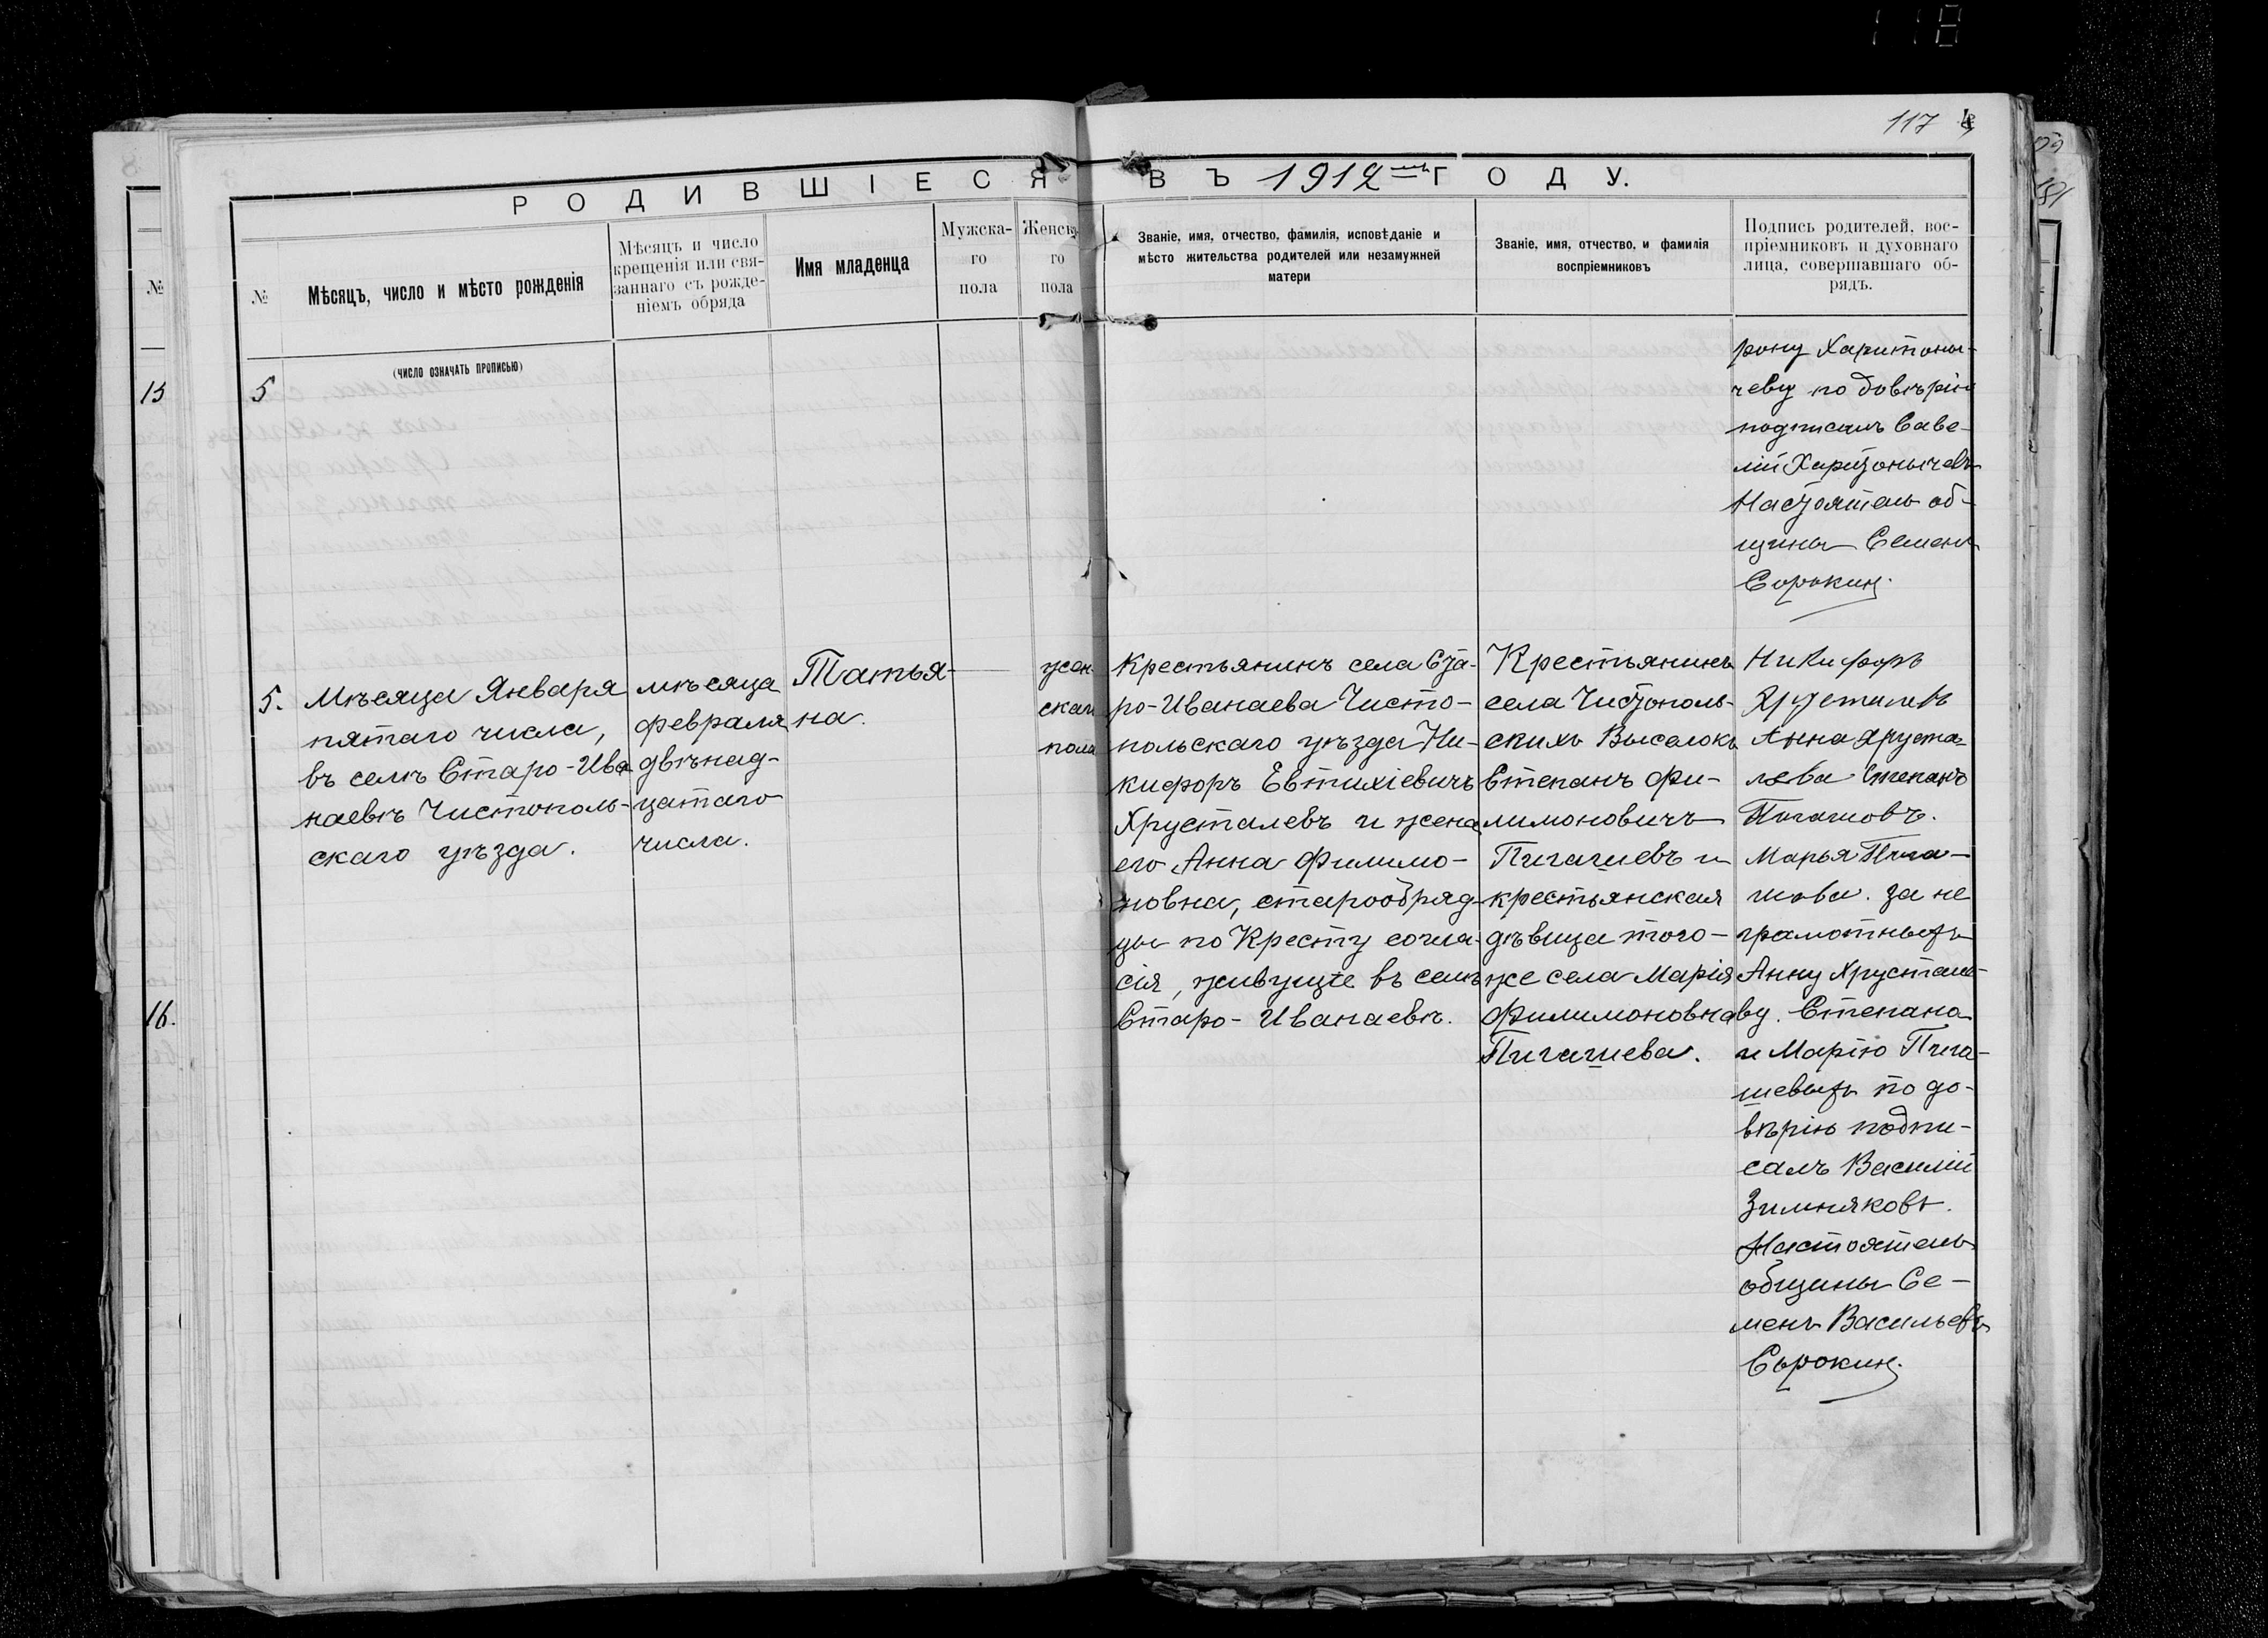 118
117
РОДИВШІЕСЯ ВЪ 1912 ГОДУ.
№
№
Мѣсяцъ, число и мѣсто рожденія
(число означать прописью)
Мѣсяцъ и число
крещенія или свя-
заннаго съ рожде-
ніемъ обряда
Имя младенца
Мужска-
го
пола
Женска
го
пола
Званіе, имя, отчество, фамилія, исповѣданіе и
мѣсто жительства родителей или незамужней
матери
Званіе, имя, отчество, и фамилія
воспріемниковъ
Подпись родителей, вос-
пріемниковъ и духовнаго
лица, совершавшаго об-
рядъ.
15
16.
5
рону Харитоны-
чеву по довѣрію
подписалъ Саве-
лій Харитонычевъ
Настоятель об-
щины Семенъ
Сорокин.
5.
Мѣсяца Января
пятаго числа,
въ селѣ Старо-Ива
наевѣ Чистополь-
скаго уѣзда.
мѣсяца
февраля
двѣнад-
цатаго
числа.
Татья-
на.
жен-
скаго
пола
Крестьянинъ села Ста-
ро-Иванаева Чисто-
польскаго уѣзда Ни-
кифоръ Евтихіевичъ
Хрусталевъ и жена
его Анна Филимо-
новна, старообряд-
цы по Кресту согла-
сія, живущіе въ селѣ
Старо-Иванаевѣ.
Крестьянинъ
села Чистополь-
скихъ Выселокъ
Степанъ Фи-
лимоновичъ
Пигашевъ и
крестьянская
дѣвица того-
же села Марія
Филимоновна
Пигашева.
Никифоръ
Хрусталевъ
Анна Хруста-
лева Степанъ
Пигашовъ.
Марья Пига-
шова. за не
грамотныхъ
Анну Хрустале-
ву. Степана
и Марію Пига-
шевыхъ по до-
вѣрію подпи-
салъ Василій
Зимняковъ.
Настоятель
общины Се-
менъ Васильевъ
Сорокин.